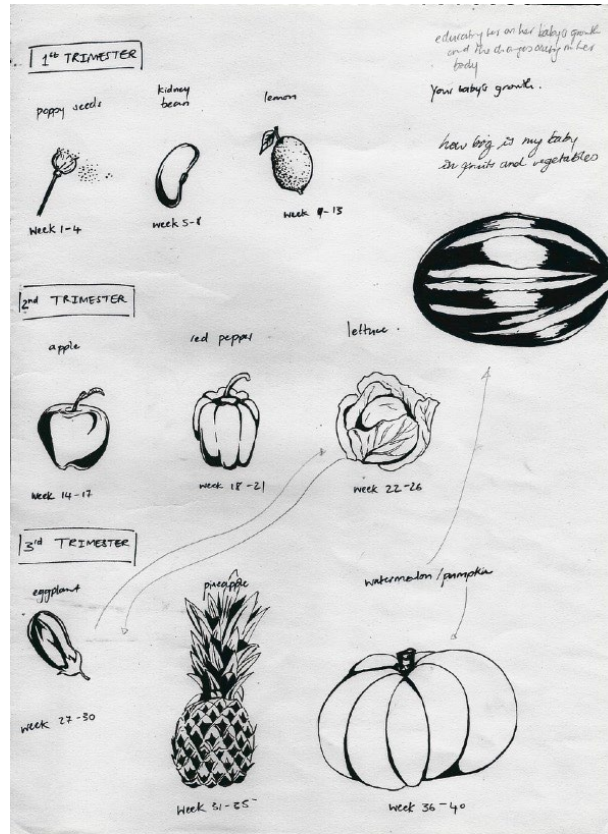 educating her on her baby's growth
and the changes in her
body
Your baby's growth.
how big is my baby
in fruits and vegetables
1st TRIMESTER
poppy seeds
kidney
bean
lemon
week 1-4
week 5-8
week 9-13
2nd TRIMESTER
apple
red pepper
lettuce.
week 14-17
week 18-21
week 22-26
3rd TRIMESTER
eggplant
pineapple
watermelon/pumpkin
week 27-30
week 31-35
week 36-40